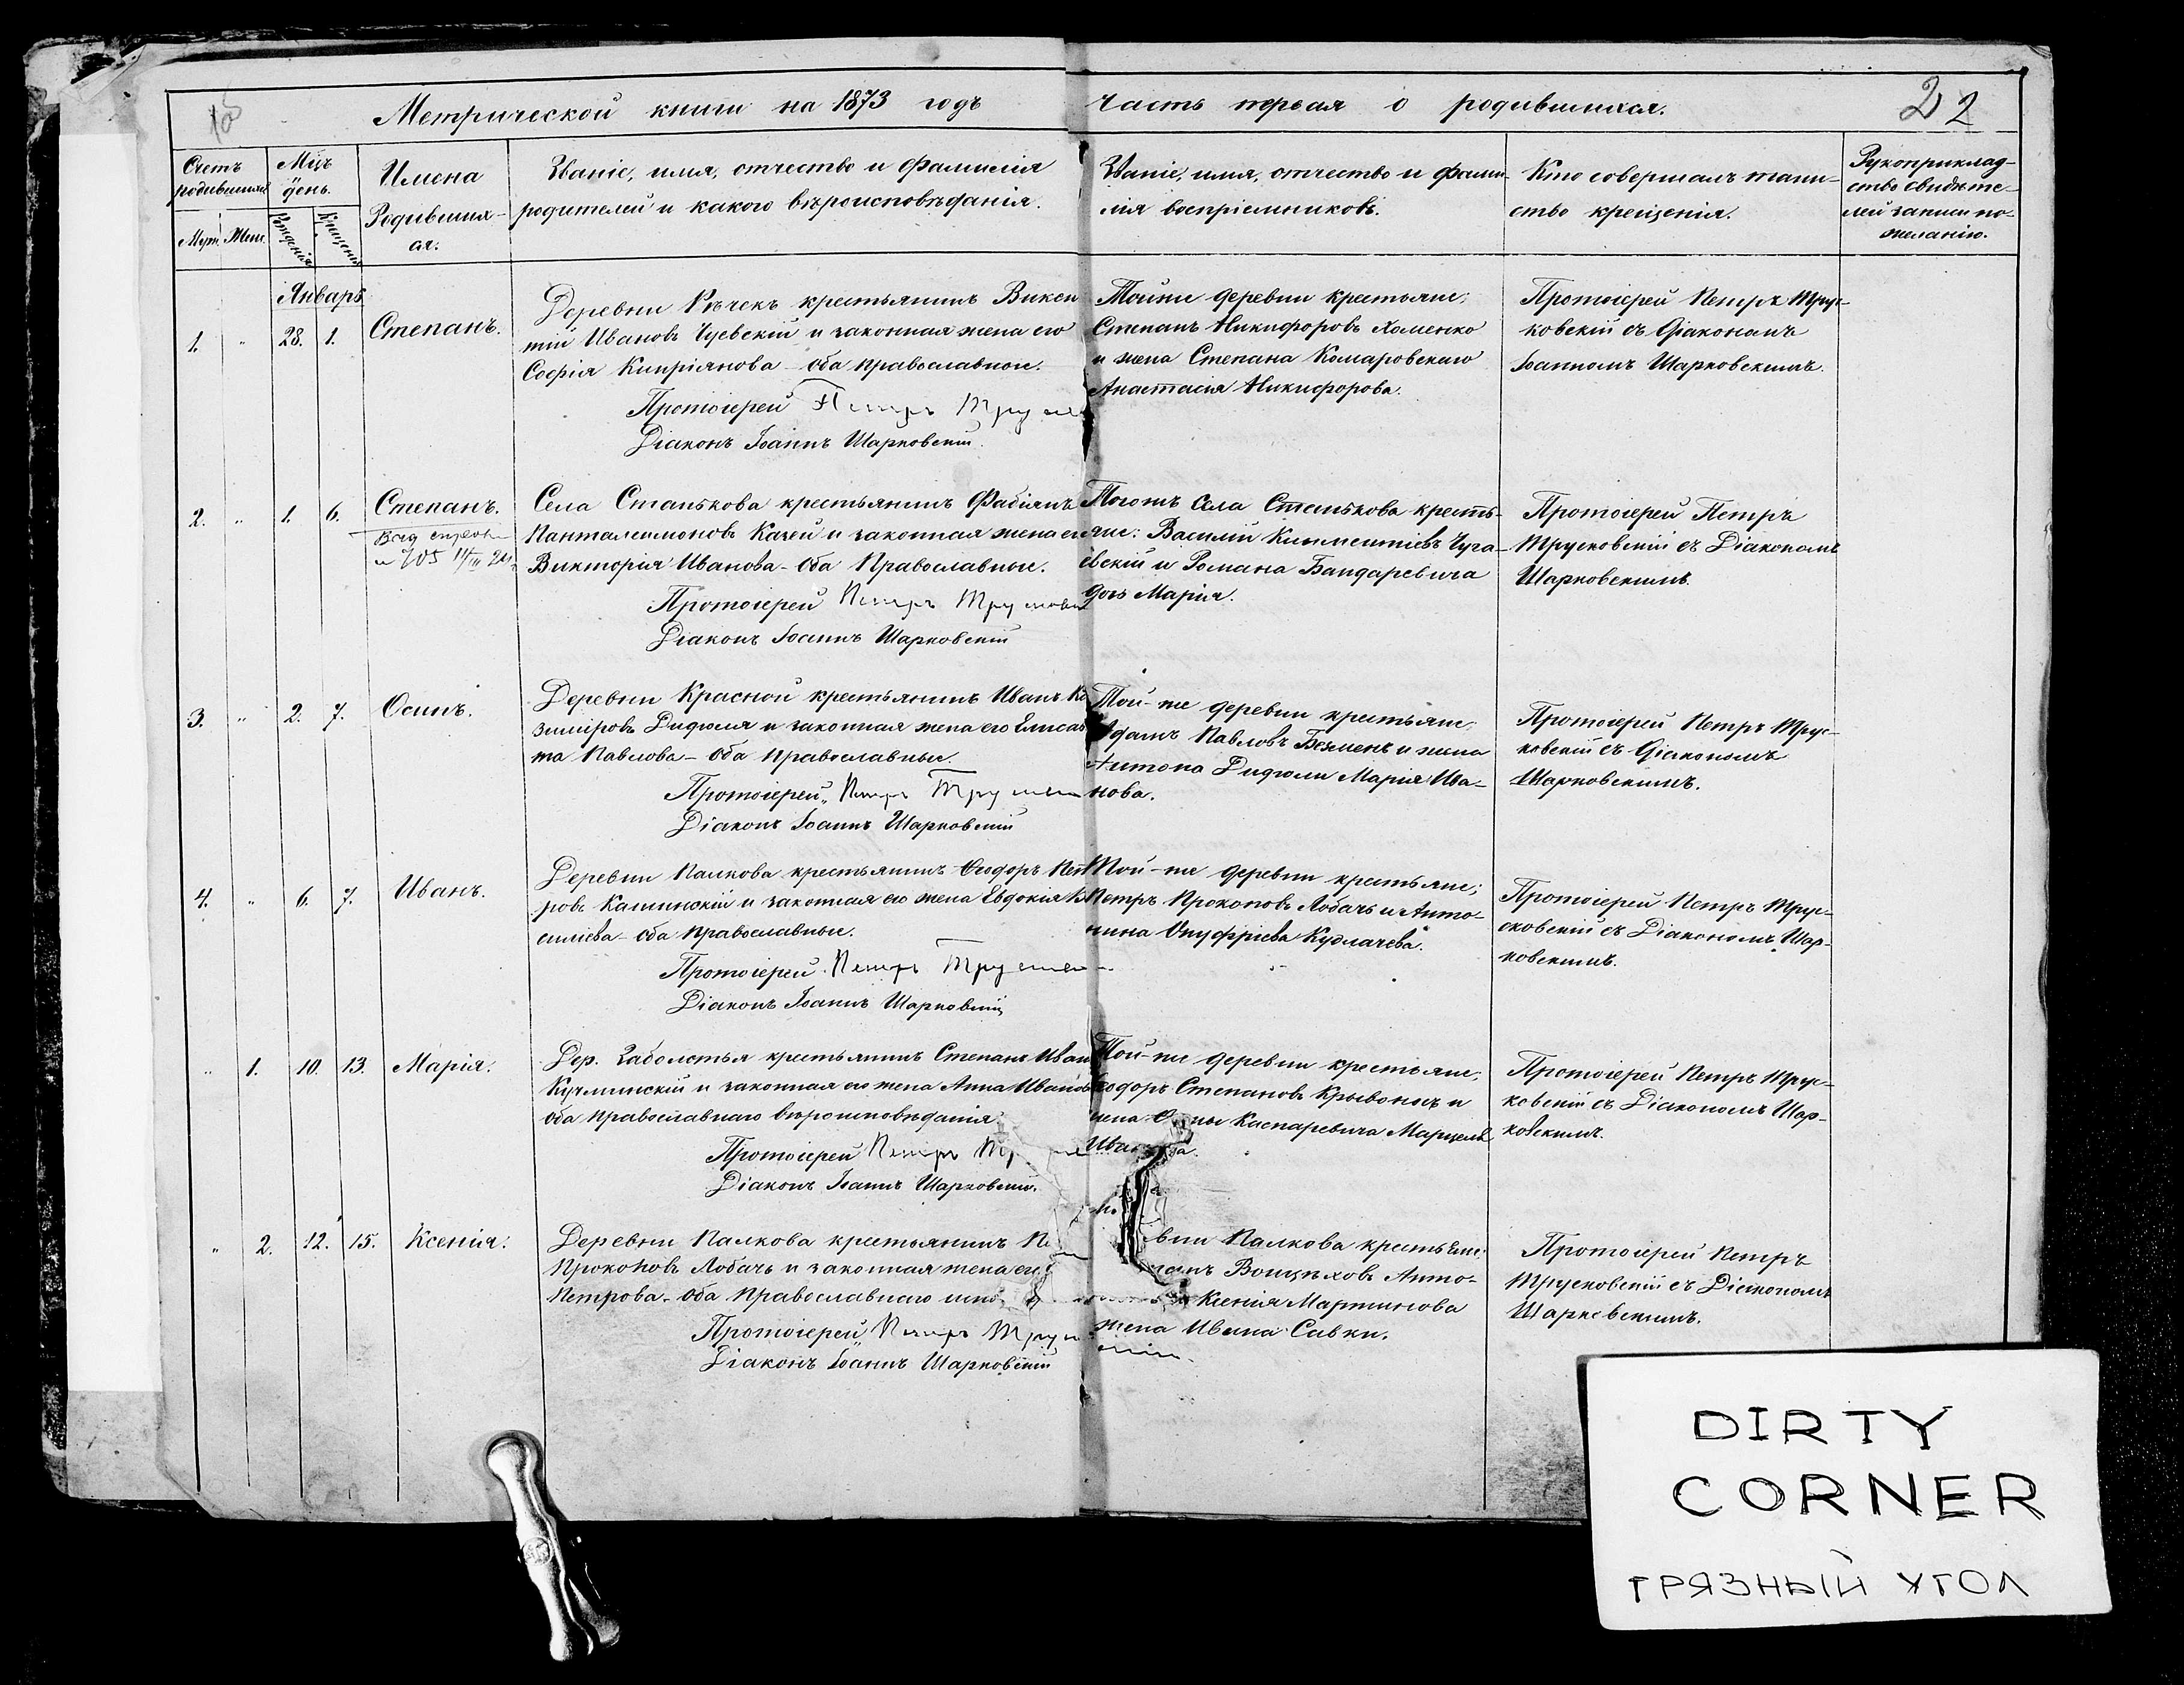 Метрической книги на 1873 годъ часть первая о родившихся.
22
Счетъ родившихся
Муж. Жен.
Мѣц. и день.
Рожденія Крещенія
Имена Родившихся.
Званіе, имя, отчество и фамилія
родителей и какого вѣроисповѣданія.
Званіе, имя, отчество и фами-
лія воспріемниковъ.
Кто совершалъ таин-
ство крещенія.
Рукоприклад-
ство свидѣте-
лей записи по-
желанію.
Январь
1. " 28. 1. Степанъ.
Деревни Рѣчекъ крестьянинъ Викен
тій Ивановъ Чуевскій и законная жена его
Софія Кипріянова – оба православные.
Протоіерей Петръ
Діаконъ Іоаннъ Шарковскій.
Тойже деревни крестьяне;
Степанъ Никифоровъ Хоменко
и жена Степана Комаровскаго
Анастасія Никифорова.
Протоіерей Петръ Трус-
ковскій съ Діакономъ
Іоанномъ Шарковскимъ.
2. " 1. 6. Степанъ.
Села Станькова крестьянинъ Фабіянъ
Панталеимоновъ Качей и законная жена его
Викторія Иванова – оба Православные.
Протоіерей Петръ
Діаконъ Іоаннъ Шарковскій
Тогожъ села Станькова кресть-
яне: Василій Климентіевъ Чуга-
евскій и Романа Бандаревича
дочь Марія.
Протоіерей Петръ
Трусковскій съ Діакономъ
Шарковскимъ.
3. " 2. 7. Осипъ.
Деревни Красной крестьянинъ Иванъ Ка
зиміровъ Дидюля и законная жена его Елисав
та Павлова – оба православные.
Протоіерей Петръ
Діаконъ Іоаннъ Шарковскій
Той-же деревни крестьяне,
Адамъ Павловъ Безменъ и жена
Антона Дидюли Марія Ива-
нова.
Протоіерей Петръ Трус-
ковскій съ Діакономъ
Шарковскимъ.
4. " 6. 7. Иванъ.
Деревни Палкова крестьянинъ Ѳеодоръ Пет
ровъ Кашинскій и законная его жена Евдокія Ва
силіева – оба православные.
Протоіерей Петръ
Діаконъ Іоаннъ Шарковскій
Той-же деревни крестьяне;
Петръ Прокоповъ Лобачъ и Анто-
нина Онуфріева Кудлачева.
Протоіерей Петръ Трус-
сковскій съ Діакономъ Шар-
ковскимъ.
" 1. 10. 13. Марія.
Дер. Заболотья крестьянинъ Степанъ Иван
и законная его жена Анна Иванов
оба православнаго вѣроисповѣданія.
Протоіерей Петръ
Діаконъ Іоаннъ Шарковскій.
Той-же деревни крестьяне,
Ѳеодоръ Степановъ Кривоносъ и
жена Каспаревича
Протоіерей Петръ Трус-
ковскій съ Діакономъ Шар-
ковскимъ.
" 2. 12. 15. Ксенія.
Деревни Палкова крестьянинъ Пе
Прокоповъ Лобачъ и законная жена его
Петрова – оба Православнаго
Протоіерей Петръ
Діаконъ Іоаннъ Шарковскій
вни Палкова крестьяне:
Войцѣховъ Анто-
Ксенія Мартинова
жена Ивана Савки.
Протоіерей Петръ
Трусковскій съ Діакономъ
Шарковскимъ.
DIRTY
CORNER
ГРЯЗНЫЙ УГОЛ